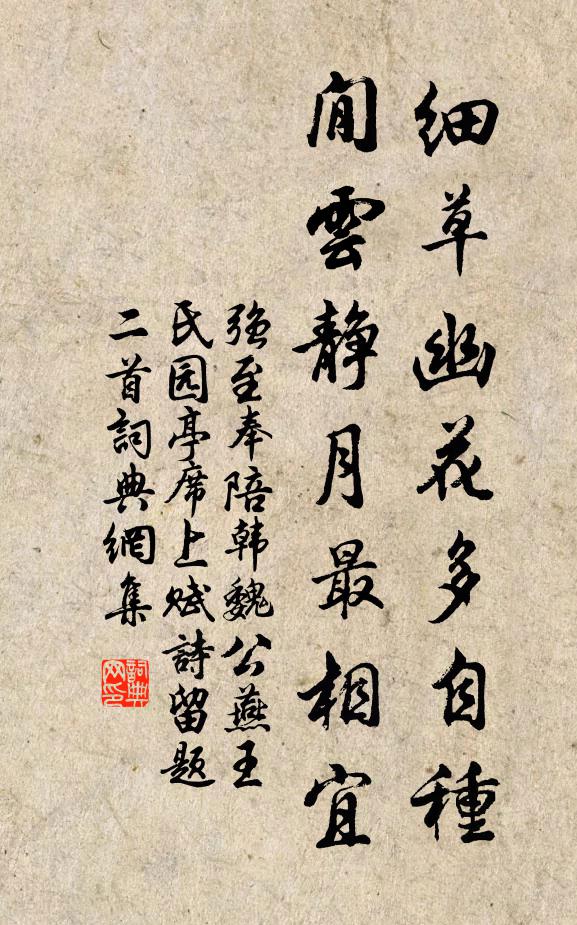 细草幽花多自種
閒雲静月最相宜
强至奉陪韩魏公燕王
民园亭席上赋詩留题
二首詞典網集
詞典网印